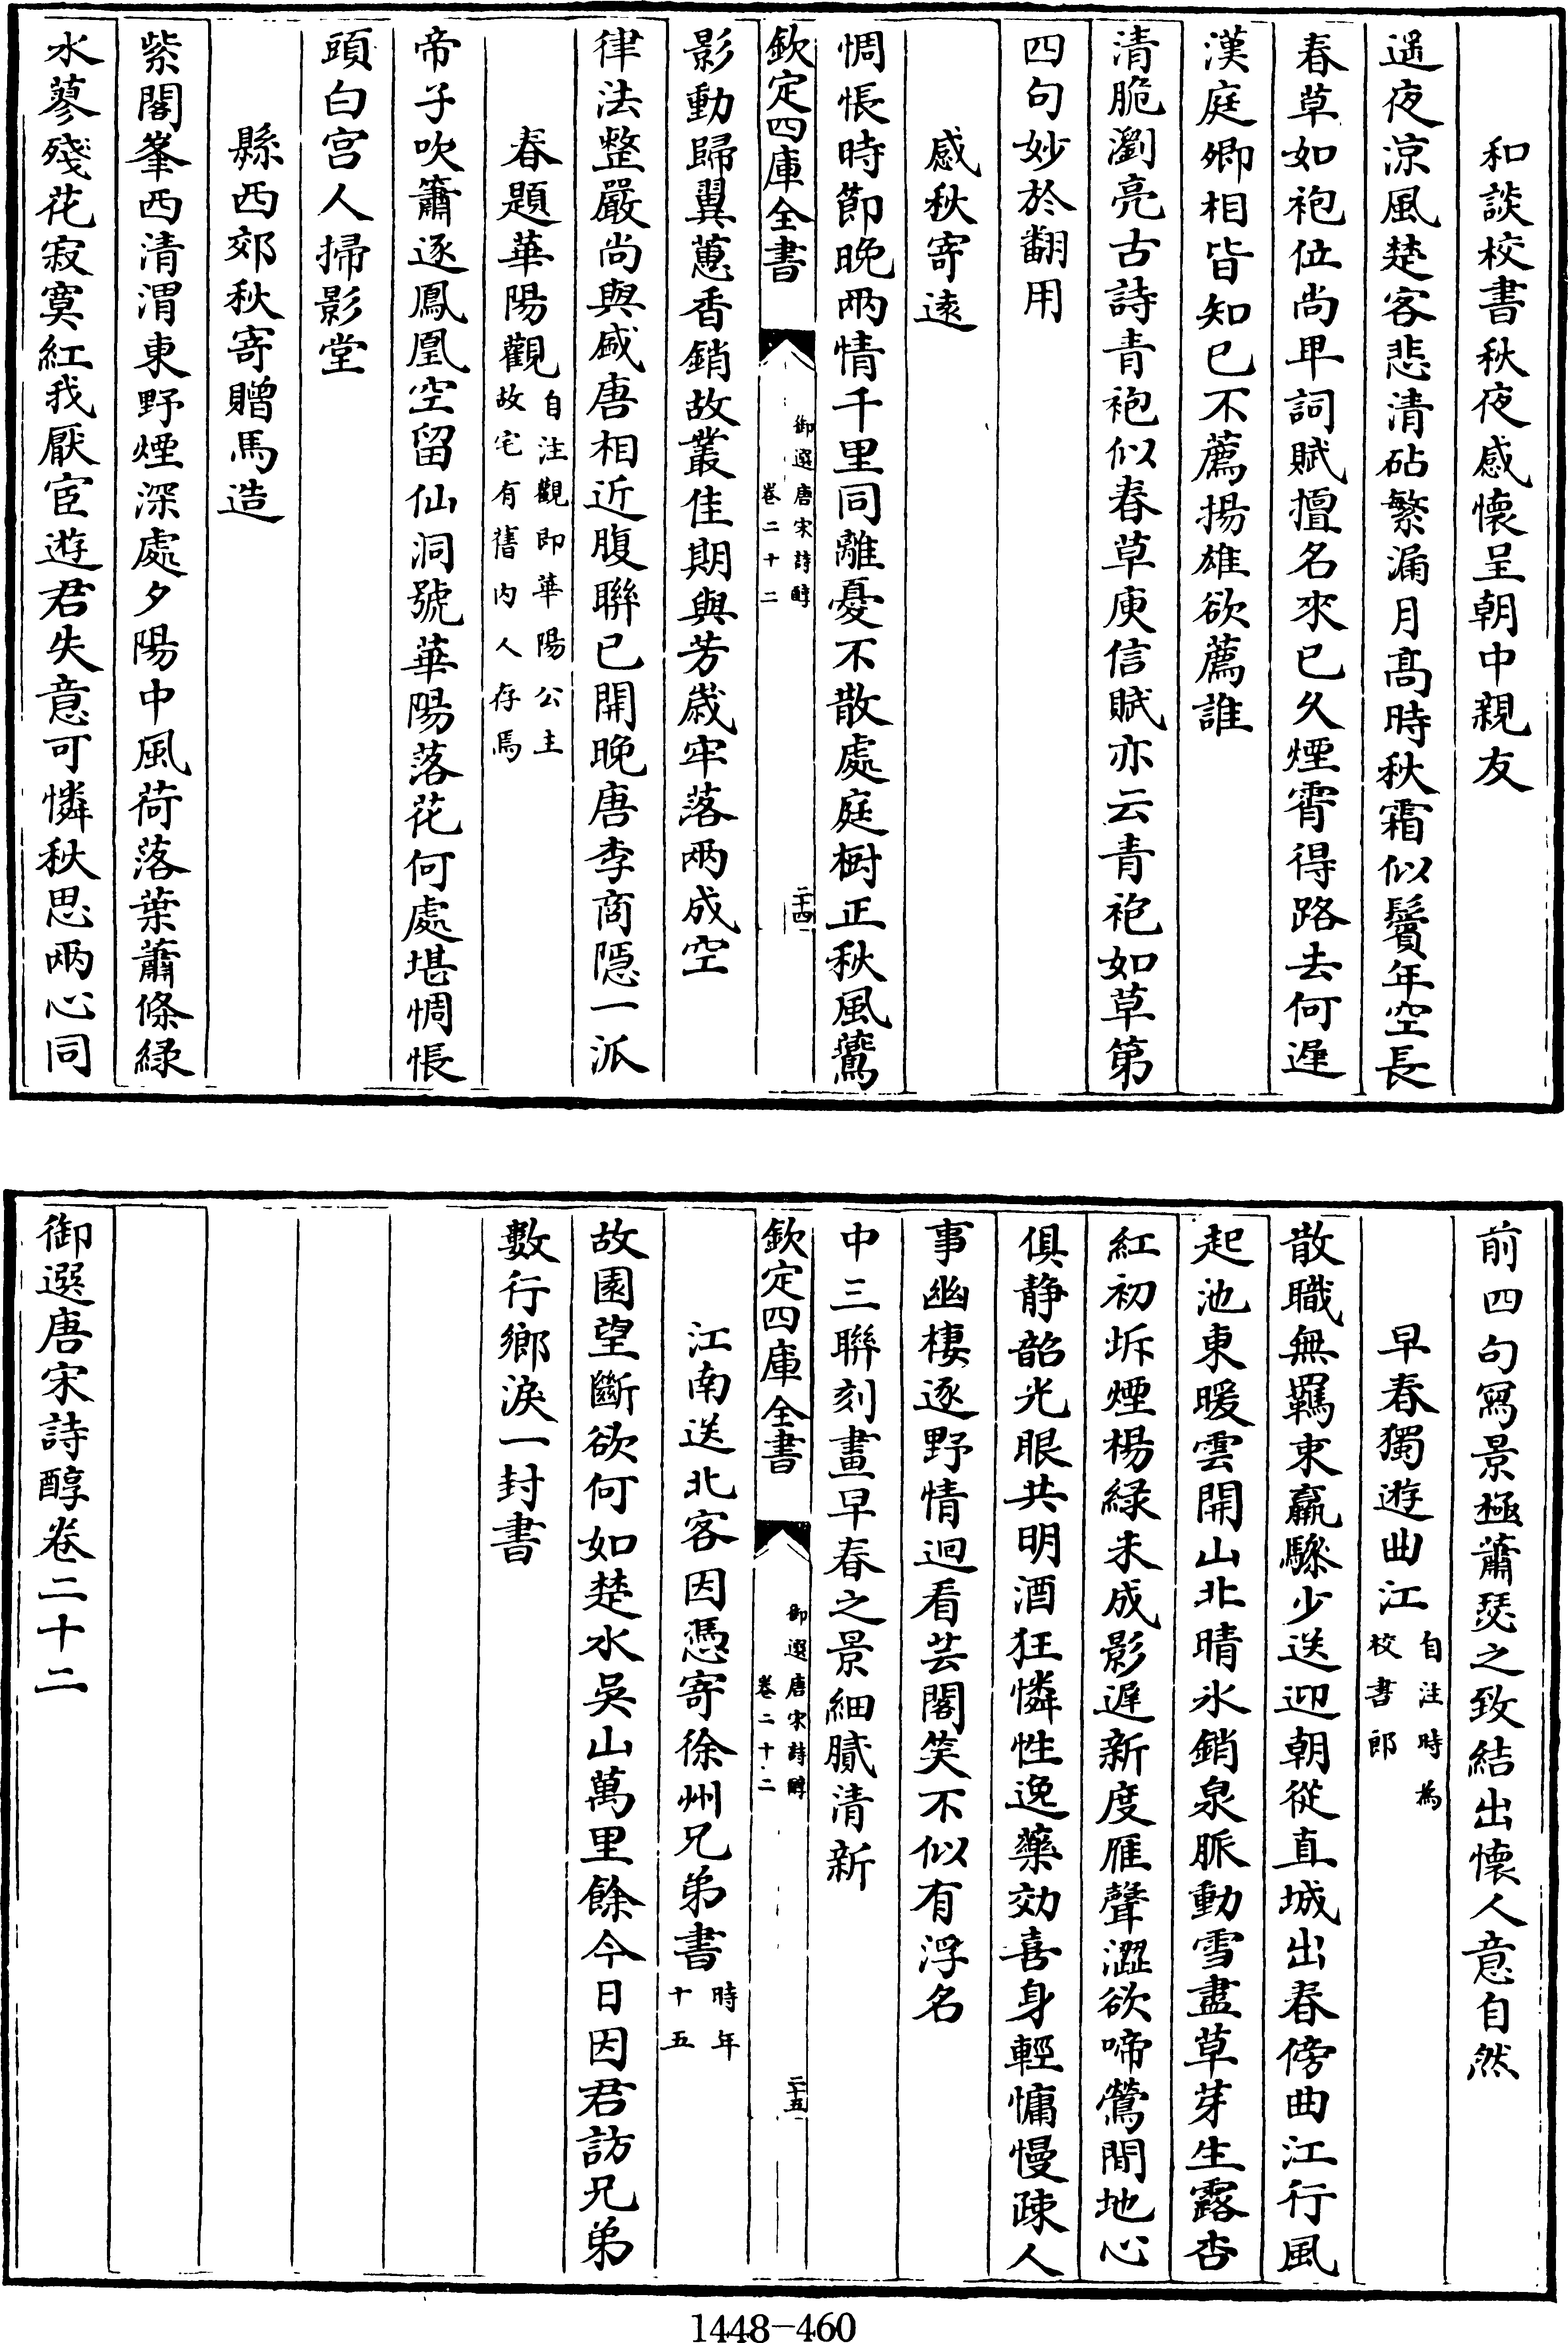 和談校書秋夜感懷呈朝中親友
遥夜涼風楚客悲清砧繁漏月高時秋霜似鬢年空長
春草如袍位尚卑詞賦擅名來已久煙霄得路去何遲
漢庭卿相皆知已不薦揚雄欲薦誰
清脆瀏亮古詩青袍似春草庾信賦亦云青袍如草第
四句妙於翻用
感秋寄逺
惆悵時節晚兩情千里同離憂不散處庭樹正秋風鷰
欽定四庫全書
御選唐宋詩醇
卷二十二
二十四
影動歸翼蕙香銷故叢佳期與芳歳牢落兩成空
律法整嚴尚與盛唐相近腹聯已開晚唐李商隱一派
春題華陽觀自注觀即華陽公主故宅有舊内人存焉
帝子吹簫逐鳳凰空留仙洞號華陽落花何處堪惆悵
頭白宫人掃影堂
縣西郊秋寄贈馬造
紫閣峯西清渭東野煙深處夕陽中風荷落葉蕭條緑
水蓼殘花寂寞紅我厭宦遊君失意可憐秋思兩心同
前四句寫景極蕭瑟之致結出懷人意自然
早春獨遊曲江自注時為校書郎
散職無羈束羸驂少送迎朝從直城出春傍曲江行風
起池東暖雲開山北晴氷銷泉脈動雪盡草芽生露杏
紅初坼煙楊緑未成影遲新度雁聲澀欲啼鶯閒地心
俱静韶光眼共明酒狂憐性逸藥効喜身輕慵慢疎人
事幽棲逐野情迴看芸閣笑不似有浮名
中三聯刻畫早春之景細膩清新
欽定四庫全書
御選唐宋詩醇
卷二十二
二十五
江南送北客因憑寄徐州兄弟書時年十五
故園望斷欲何如楚水吳山萬里餘今日因君訪兄弟
數行鄉淚一封書
御選唐宋詩醇卷二十二
1448-460